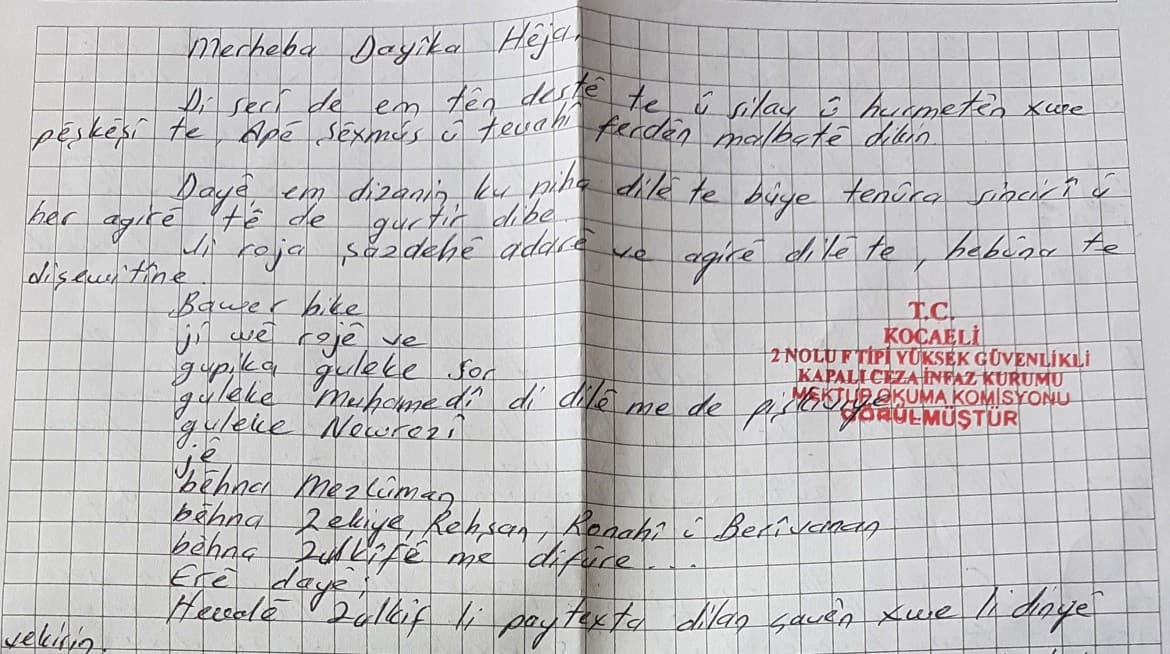 Merheba Dayîka Hêja,
Di serî de em tên destê te û silav û hurmetên xwe
pêşkêşî te, Apê Şêxmûs û tevahî ferdên malbatê dikin.
Dayê, em dizanin ku niha dilê te bûye tenûra sincirî û
her agirê tê de gurtir dibe.
Ji roja şazdehê adarê ve agirê dilê te, hebûna te
dişewitîne
Bawer bike
ji wê rojê ve
gupika guleke sor
guleke Muhamedî di dilê me de
guleke Newrozî
jê
bêhna Mezlûman
bêhna Zekiye, Rehşan, Ronahî û Berîvanan
bêhna Zulkifê me difûre...
Erê dayê;
Hevalê Zulkif li paytexta dilan çavên xwe li dinyê
vekirin.
T.C.
KOCAELİ
2 NOLU F TİPİ YÜKSEK GÜVENLİKLİ
KAPALI CEZA İNFAZ KURUMU
MEKTUP OKUMA KOMİSYONU
GÖRÜLMÜŞTÜR